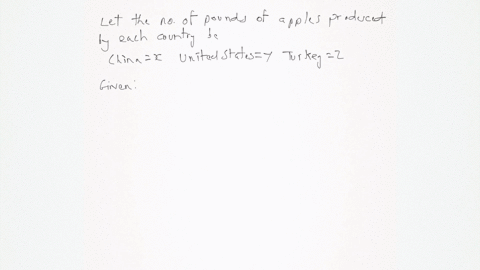 Let the no. of pounds of apples produced
by each country be
China=x United States=y Turkey=z
Given: